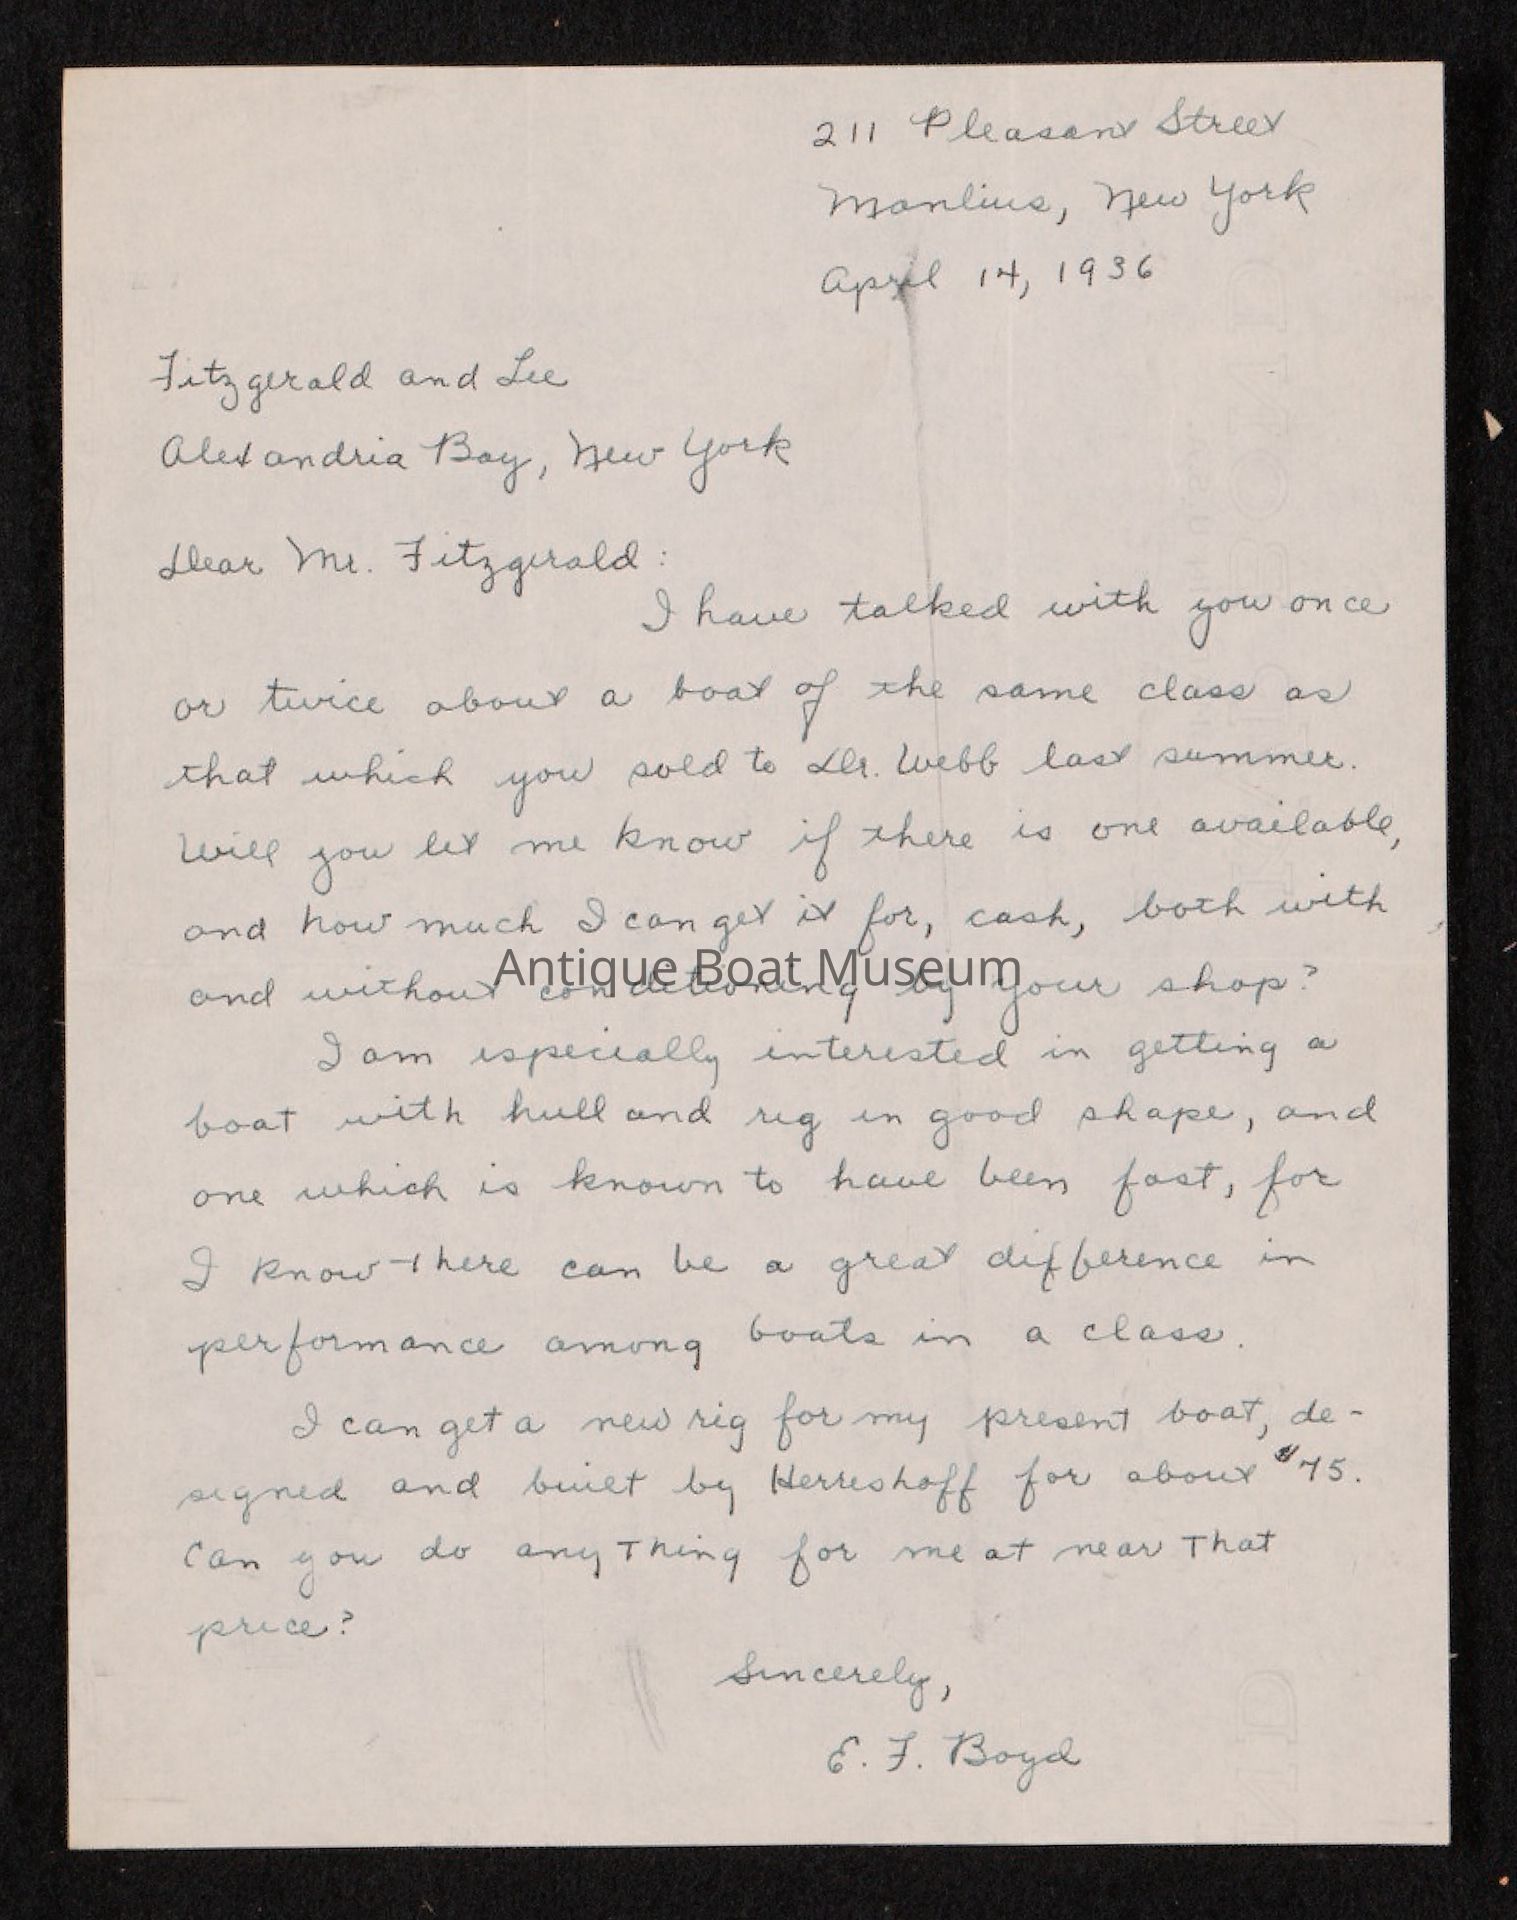 211 Pleasant Street
Manlius, New York
April 14, 1936
Fitzgerald and Lee
Alexandria Bay, New York
Dear Mr. Fitzgerald:
I have talked with you once
or twice about a boat of the same class as
that which you sold to Dr. Webb last summer.
Will you let me know if there is one available,
and how much I can get it for, cash, both with
and without conditioning by your shop?
Antique Boat Museum
I am especially interested in getting a
boat with hull and rig in good shape, and
one which is known to have been fast, for
I know there can be a great difference in
performance among boats in a class.
I can get a new rig for my present boat, de-
signed and built by Herreshoff for about $75.
Can you do anything for me at near that
price?
Sincerely,
E. F. Boyd